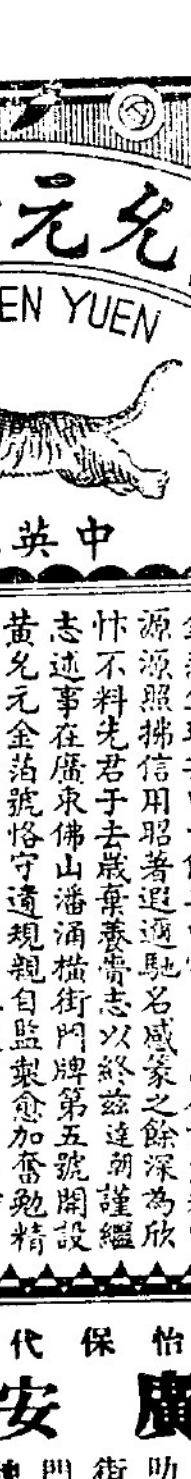 允元
EN YUEN
中英
源源照拂信用昭著遐邇馳名感篆之餘深為欣
忭不料先君于去歲棄養賫志以終茲達朝謹繼
志述事在廣東佛山潘涌橫街門牌第五號開設
黃允元金箔號恪守遺規親自監製愈加奮勉精
怡保代
廣安
助街門